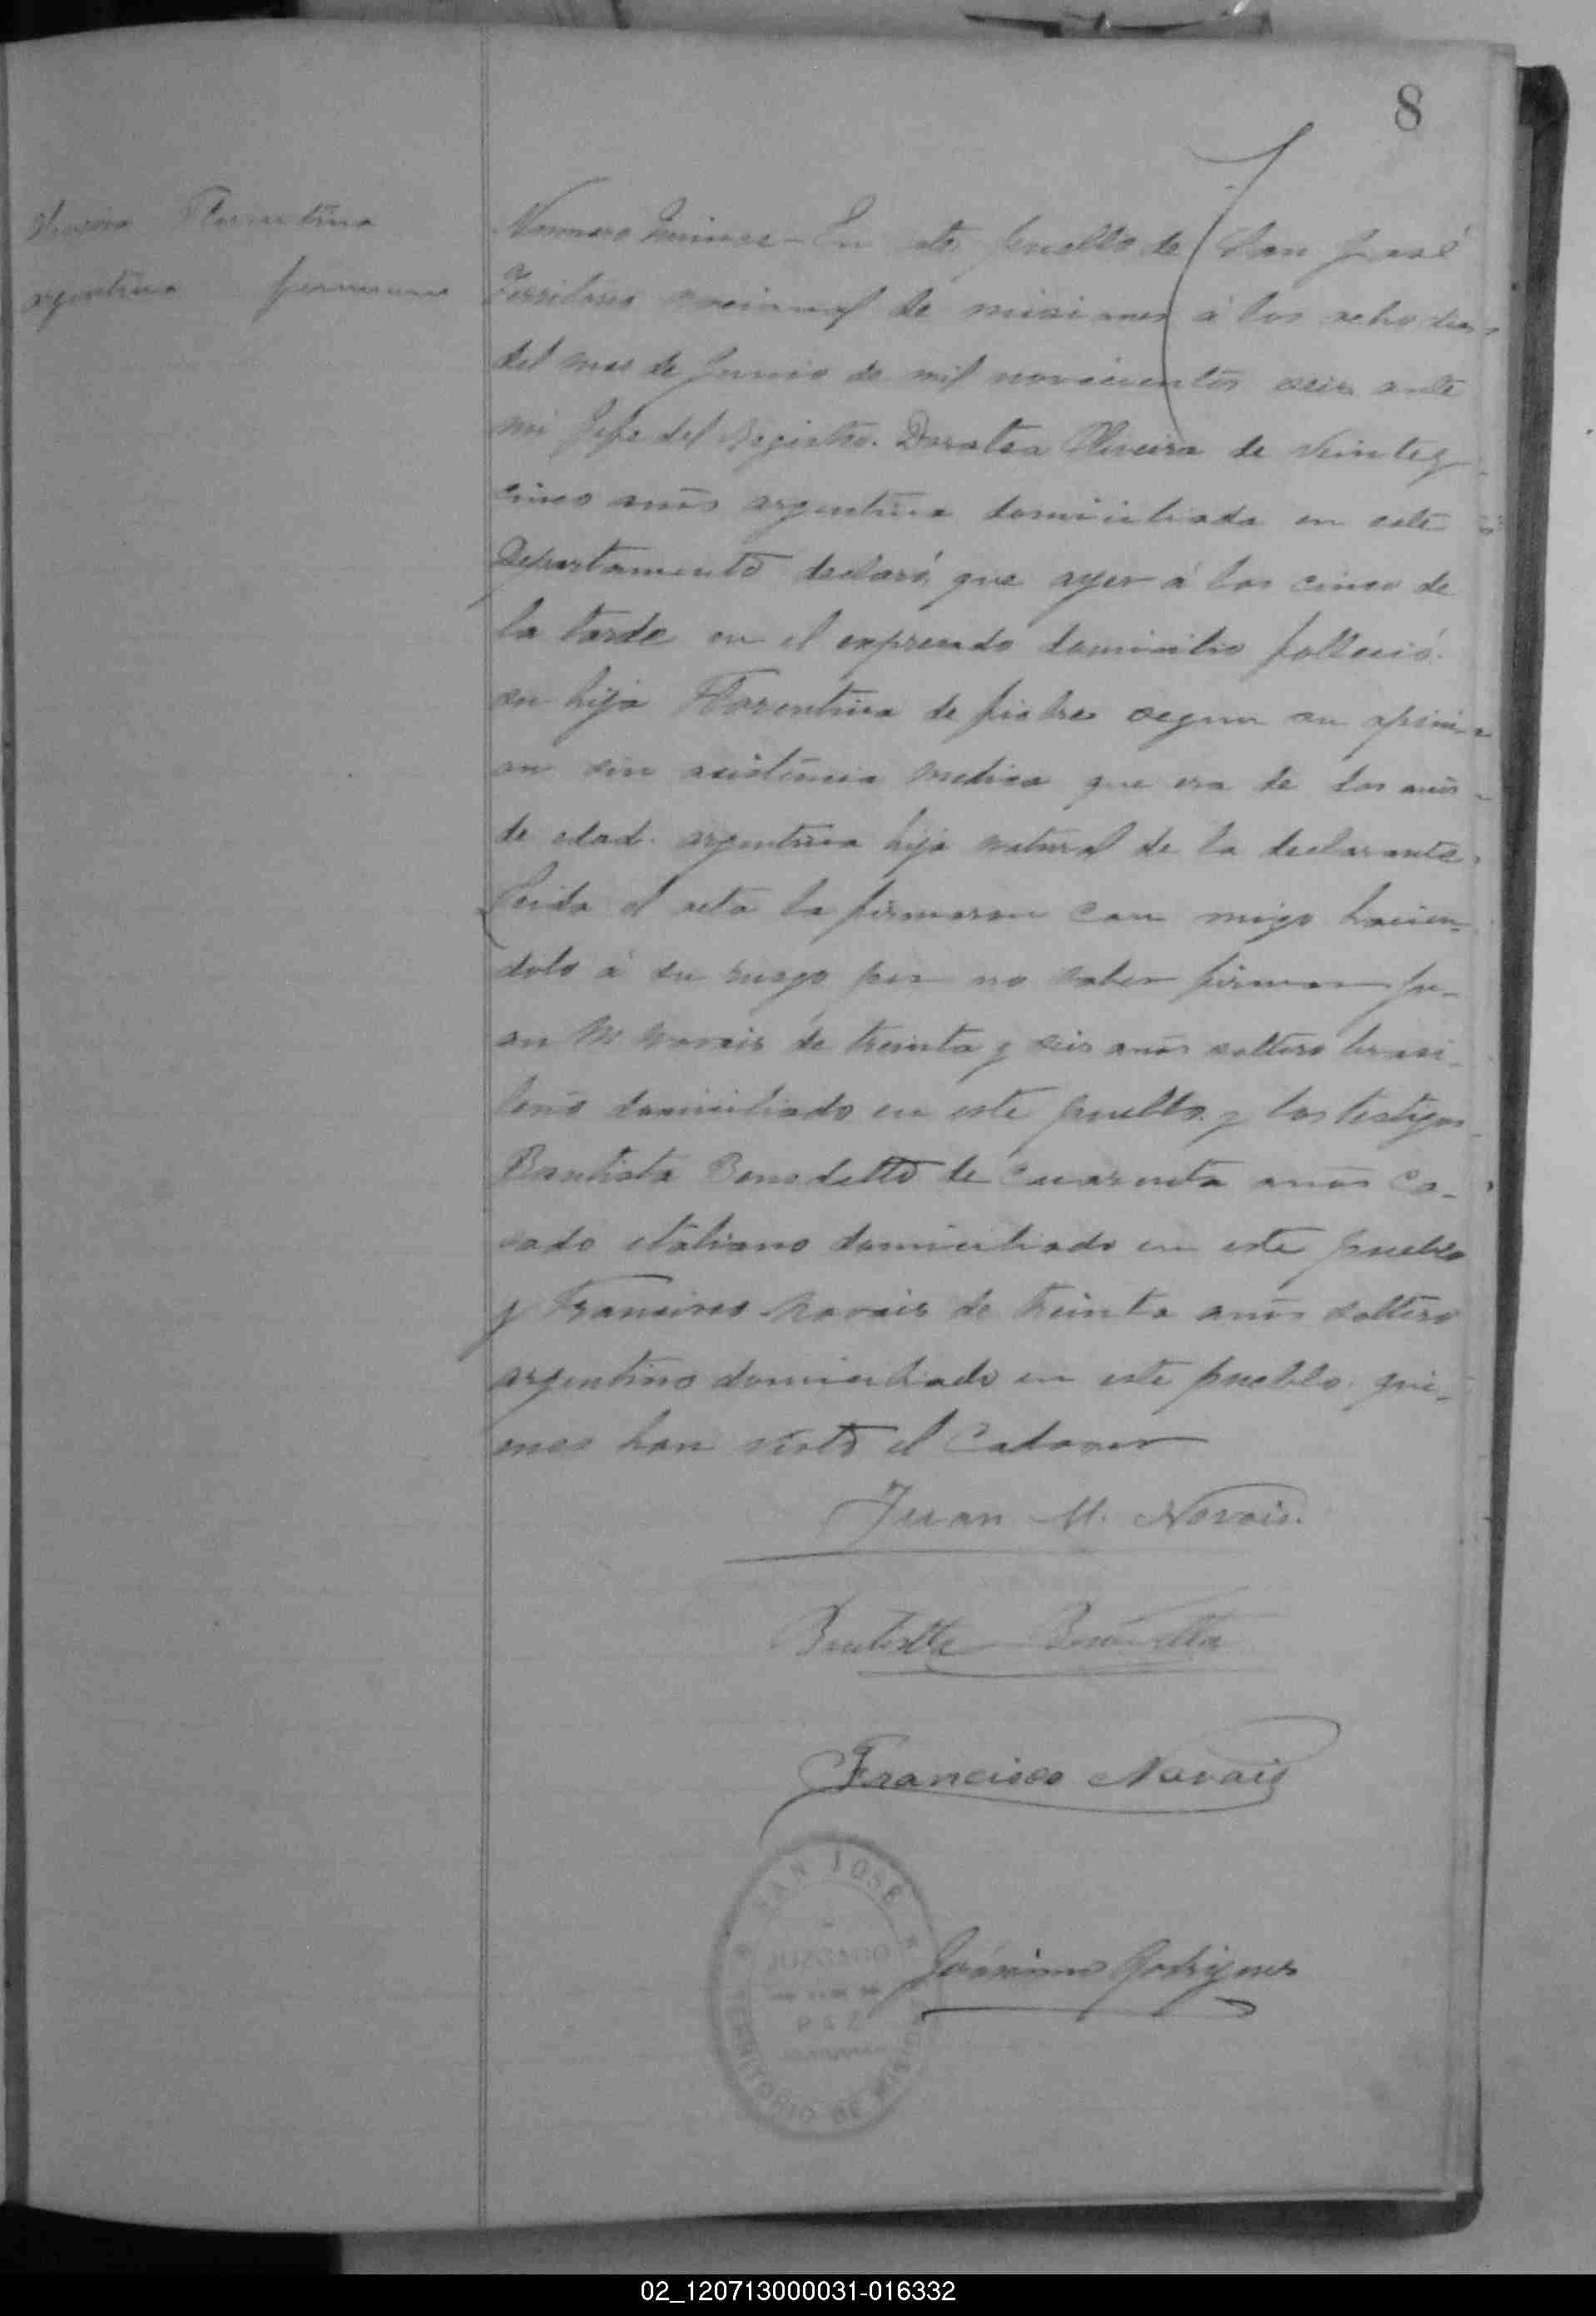 8
Oliveira Florentina
argentina
Numero quince - En este pueblo de San José
Territorio nacional de misiones á los ocho dias
del mes de Junio de mil novecientos seis ante
mi Jefe del Registro. Doratea Oliveira de veintey
cinco años argentina domiciliada en este
Departamento declaró que ayer á las cinco de
la tarde en el expresado domicilio falleció
su hija Florentina de fiebre segun su opini-
on sin asistencia medica que era de dos años
de edad. argentina hija natural de la declarante.
Leida el acta la firmaron con migo hacien-
dolo á su ruego por no saber firmar Ju-
an M Novais de treinta y seis años soltero brasi-
leño domiciliado en este pueblo y los testigos
Bautista Benedetto de cuarenta años ca-
sado italiano domiciliado en este pueblo
y Francisco Novais de treinta años soltero
argentino domiciliado en este pueblo qui-
enes han visto el Cadaver
Juan M. Novais.
Francisco Novais
SAN JOSE
JUZGADO
TERRITORIO DE MISIONES
Rodriguez
02_120713000031-016332